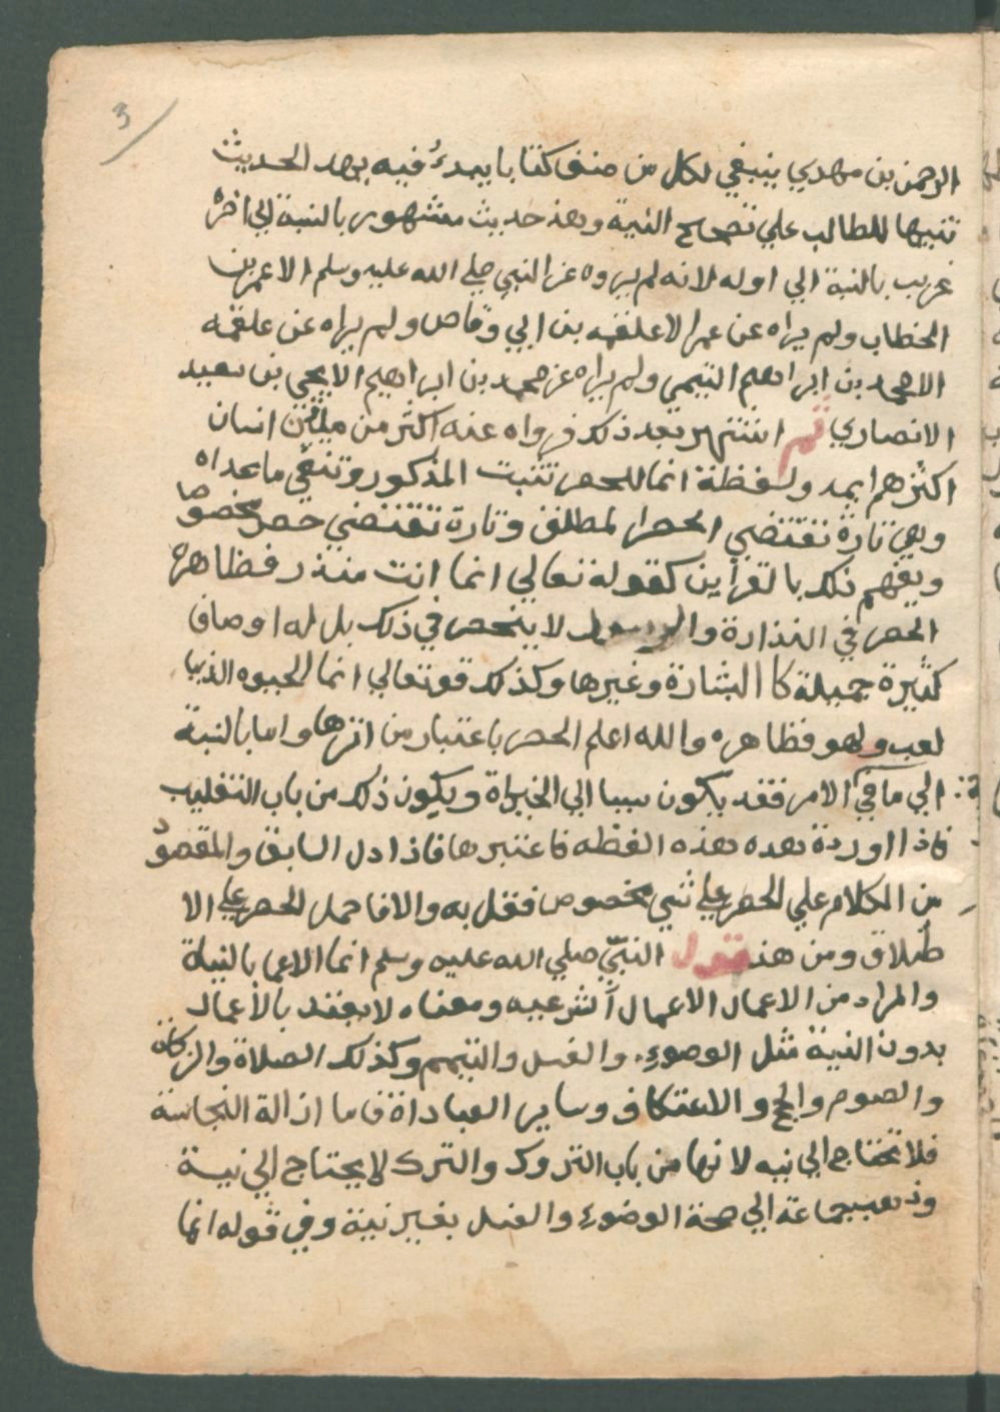 3
الرحمن بن مهدي ينبغي لكل من صنف كتابا يبدءُ فيه بهد الحديث
تنبيها للطالب علي تصحيح النية وهذ حديث مشهور بالنسبة الي اخره
غريب بالنسبة الي اوله لانه لم يروه عن النبي صلي الله عليه وسلم الا عمر بن
الخطاب ولم يراه عن عمر الا علقمه بن ابي وقاص ولم يراه عن علقمه
الا محمد بن ابراهيم التيمي ولم يراه عن محمد بن ابراهيم الا يحي بن سعيد
الانصاري ثم اشتهر بعد ذلك فرواه عنه اكثر من ميتين انسان
اكثرهم ايمه ولفظة انما للحصر تثبت المذكور وتنفي ما عداه
وهي تارة تقتضي الحصر المطلق وتارة تقتضي حصر مخصوصا
ويفهم ذلك بالقراين كقوله تعالي انما انت منذر فظاهره
الحصر في النذارة والرسول لا ينحصر في ذلك بل له اوصاف
كثيرة جميلة كا البشارة وغيرها وكذلك قوتعالي انما الحيوه الدنيا
لعب ولهو فظاهره والله اعلم الحصر باعتبار من اثرها واما بالنسبة
الي ما في الامر فقد يكون سببا الي الخيراة ويكون ذلك من باب التغليب
فاذا اوردة هده هذه الفظه فاعتبرها فاذا دل السابق والمقصود
من الكلام علي الحصر علي شي مخصوص فقل به والا فاحمل الحصر علي الا
طلاق ومن هذ قول النبيّ صلي الله عليه وسلم انما الاعما بالنياة
والمراد من الاعمال الاعمال الشرعيه ومعناه لا يعتد بالأعمال
بدون النية مثل الوضوء والغسل والتيمم وكذلك الصلاة والزكاة
والصوم والحج والاعتكاف وساير العباداة فاما ازالة النجاسة
فلا تحتاج الي نيه لانها من باب التروك والترك لا يحتاج الي نيــة
وذهب جماعة الي صحة الوضوء والغسل بغير نية وفي قوله انما